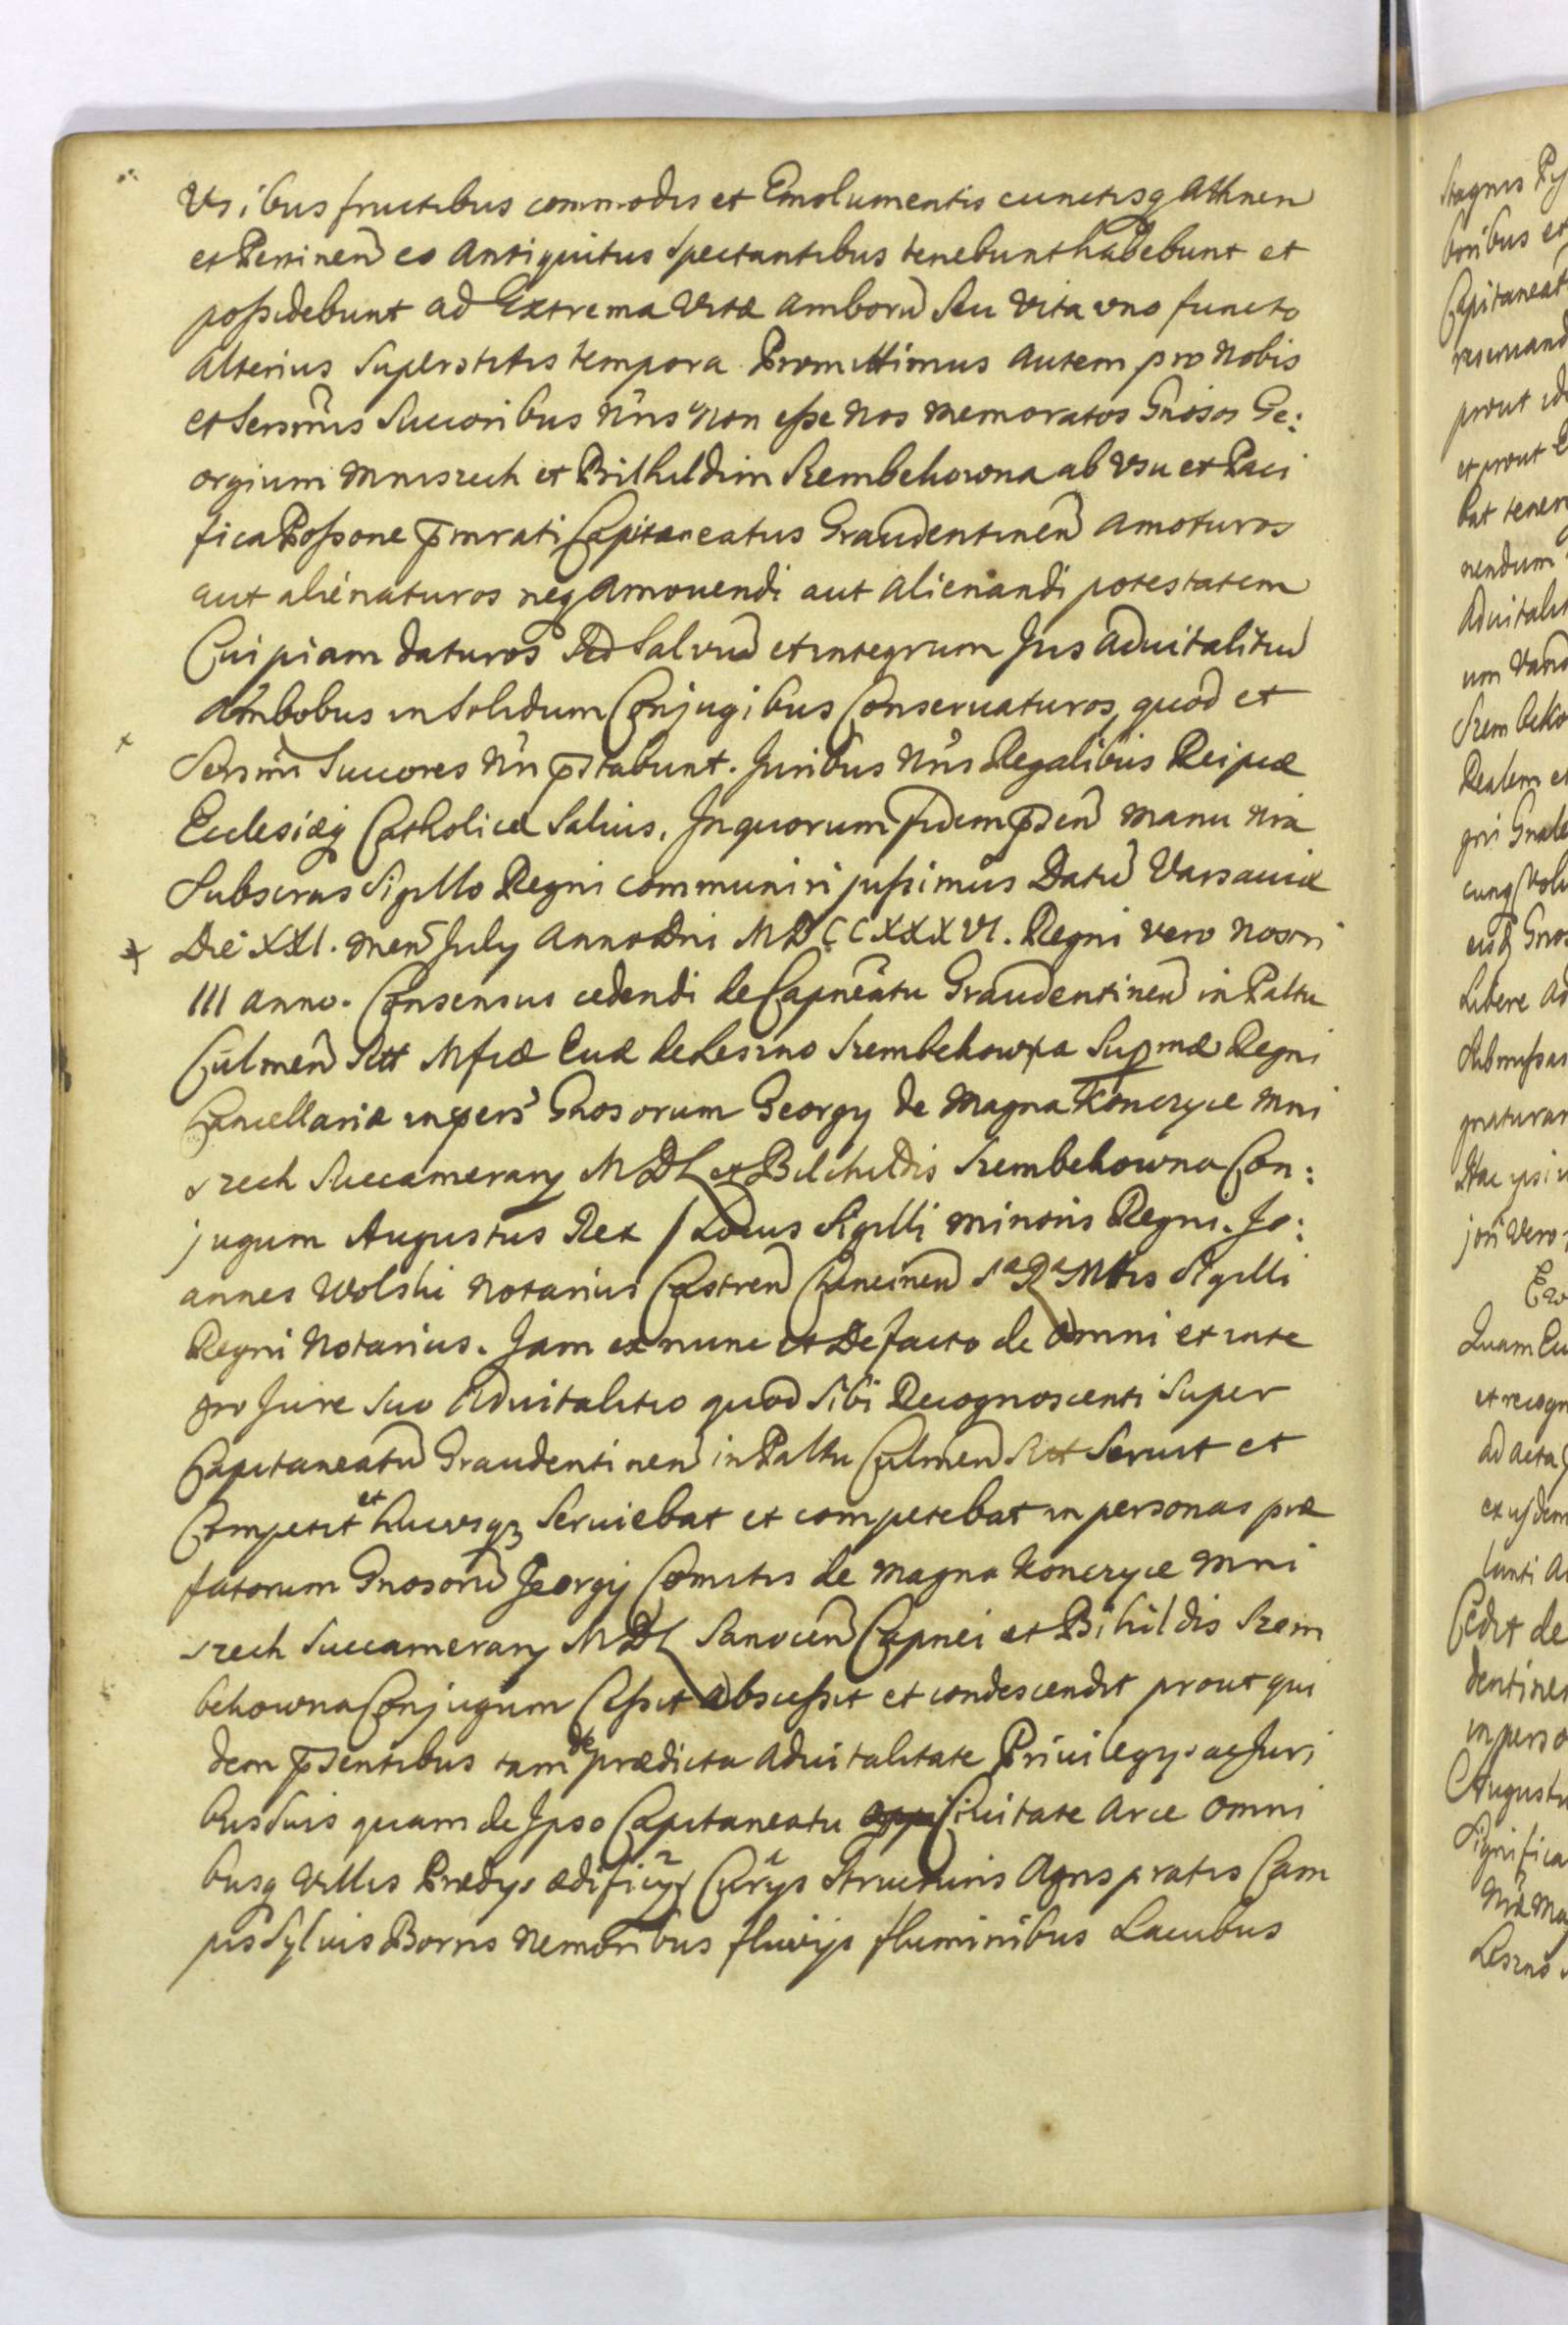 Usibus fructibus commodis et Emolumentis cunctisq Attinen
et Pertinen eo Antiquitus Spectantibus tenebunt habebunt et
possidebunt ad Extrema Vitæ amborū Seu Vita uno functo
Alterius Superstitis tempora Promittimus autem pro Nobis
et Sersmis Succoribus Nris Non esse Nos memoratos Gnosos Ge:
orgium Mniszech et Bilhildim Szembekowna ab Usu et Paci
fica Possone p̄mrati Capitaneatus Graudentinen amoturos
aut alienaturos neq Amovendi aut Alienandi potestatem
Cuipiam daturos Sed Salvum et integrum Jus Advitalitiū
Ambobus in Solidum Conjugibus Conservaturos, quod et
Sersmi Succores Nri p̄stabunt. Juribus Nris Regalibus Reipcæ
Ecclesiæq Catholicæ Salvis. In quorum fidem p̄sen manu Nra
Subscras Sigillo Regni communiri jussimus Datū Varsaviæ
Die XXI. Men July Anno Dni MDCCXXXVI. Regni vero Nostri
III anno. Consensus cedendi de Capneatu Graudentinen in Paltu
Culmen Sitt Mfcæ Evæ de Leszno Szembekowa Supmæ Regni
Cancellariæ in pers Gnosorum Georgy de Magna Konczyce Mni
szech Succamerary MDL et Bilchildis Szembekowna Con:
jugum Augustus Rex / Locus Sigilli minoris Regni. Jo:
annes Wolski Notarius Castren Chencinen Sa Ra Mttis Sigilli
Regni Notarius. Jam ex nunc et De facto de Omni et inte
gro Jure Suo Advitalitio quod Sibi Recognoscenti Super
Capitaneatū Graudentinen in Paltu Culmen Sitt Servit et
Competit et hucusq3 Serviebat et competebat in personas præ
fatorum Gnosorū Georgij Comitis de Magna Konczyce Mni
szech Succamerary MDL Sanocen Capnei et Bihildis Szem
bekowna Conjugum Cessit Abscessit et condescendit prout qui
dem p̄sentibus tam de prædicta Advitalitate Privilegys ac Juri
bus Suis quam de Ipso Capitaneatu Civitate Arce Omni
busq Villis Prædys ædificys Curys Structuris Agris pratis Cam
pis Sylvis Borris Nemoribus fluvijs fluminibus Lacubus